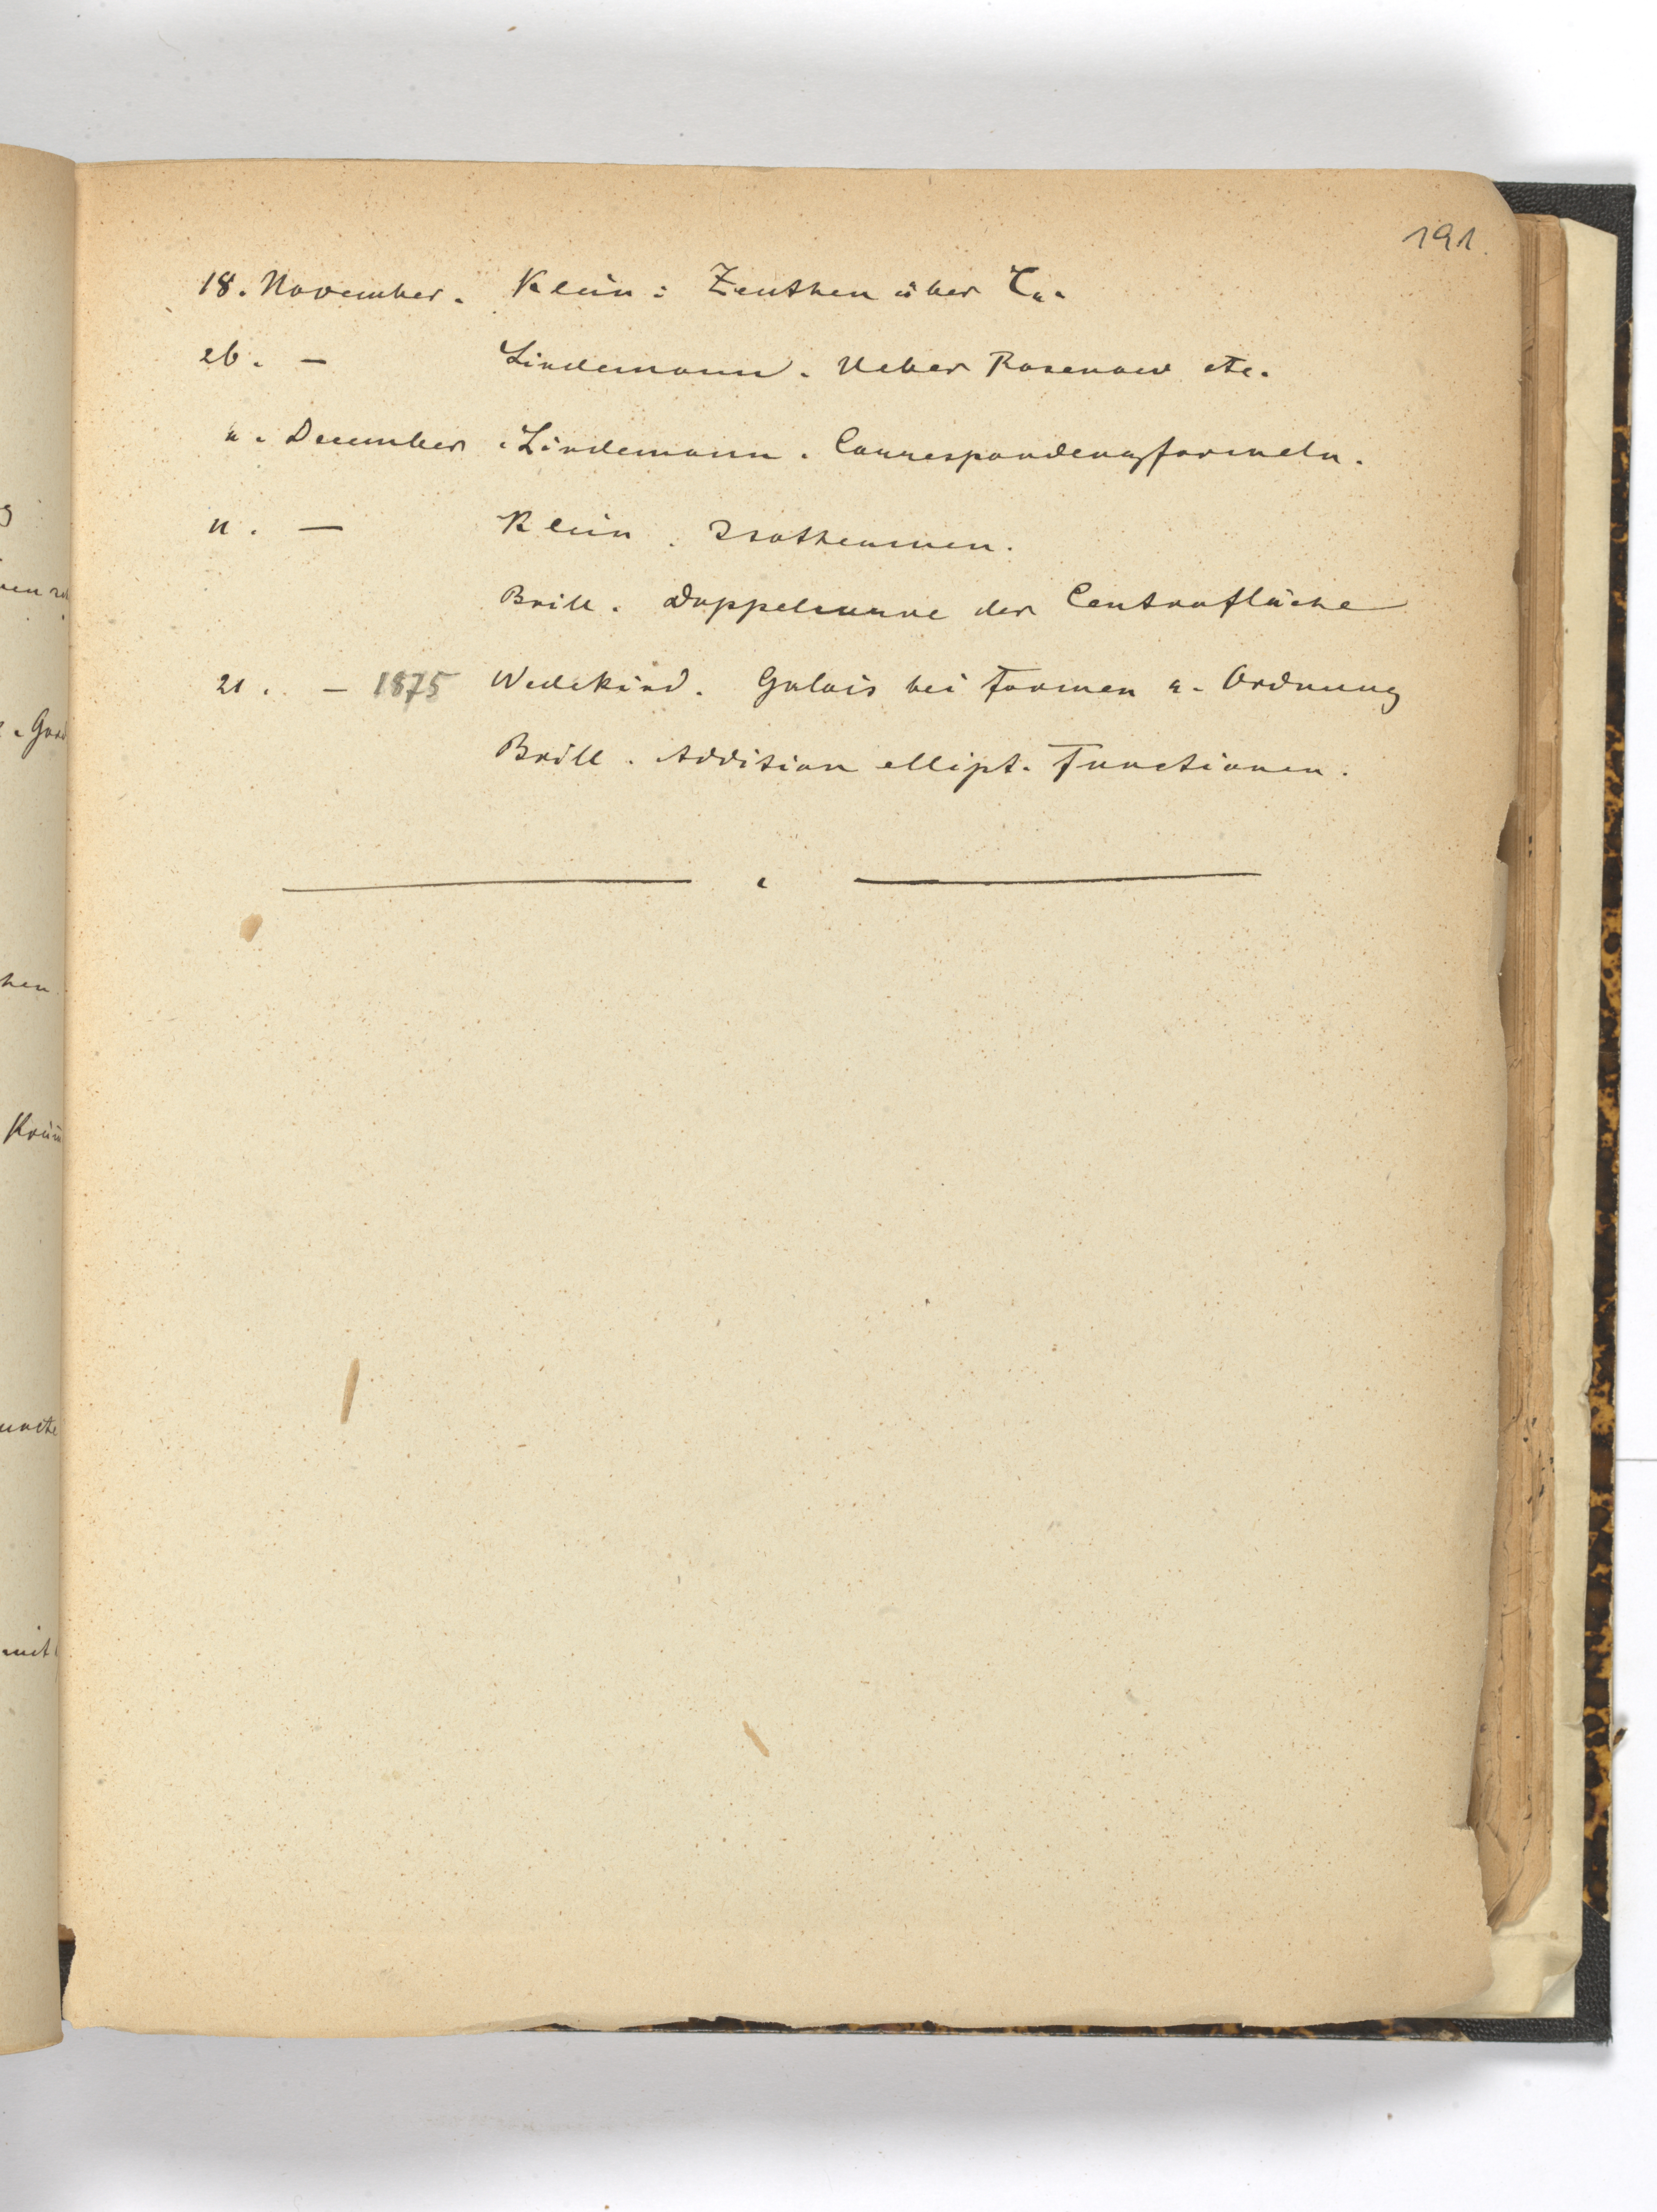 191
18. November. Klein: Zeuthen über C₄.
26. — Lindemann. Ueber Rosenow etc.
4. December. Lindemann. Correspondenzformeln.
11. — Klein. Isothermen.
Brill. Doppelcurve der Centrafläche
21. — 1875 Wedekind. Galois bei Formen 4. Ordnung
Brill. Addition ellipt. Functionen.